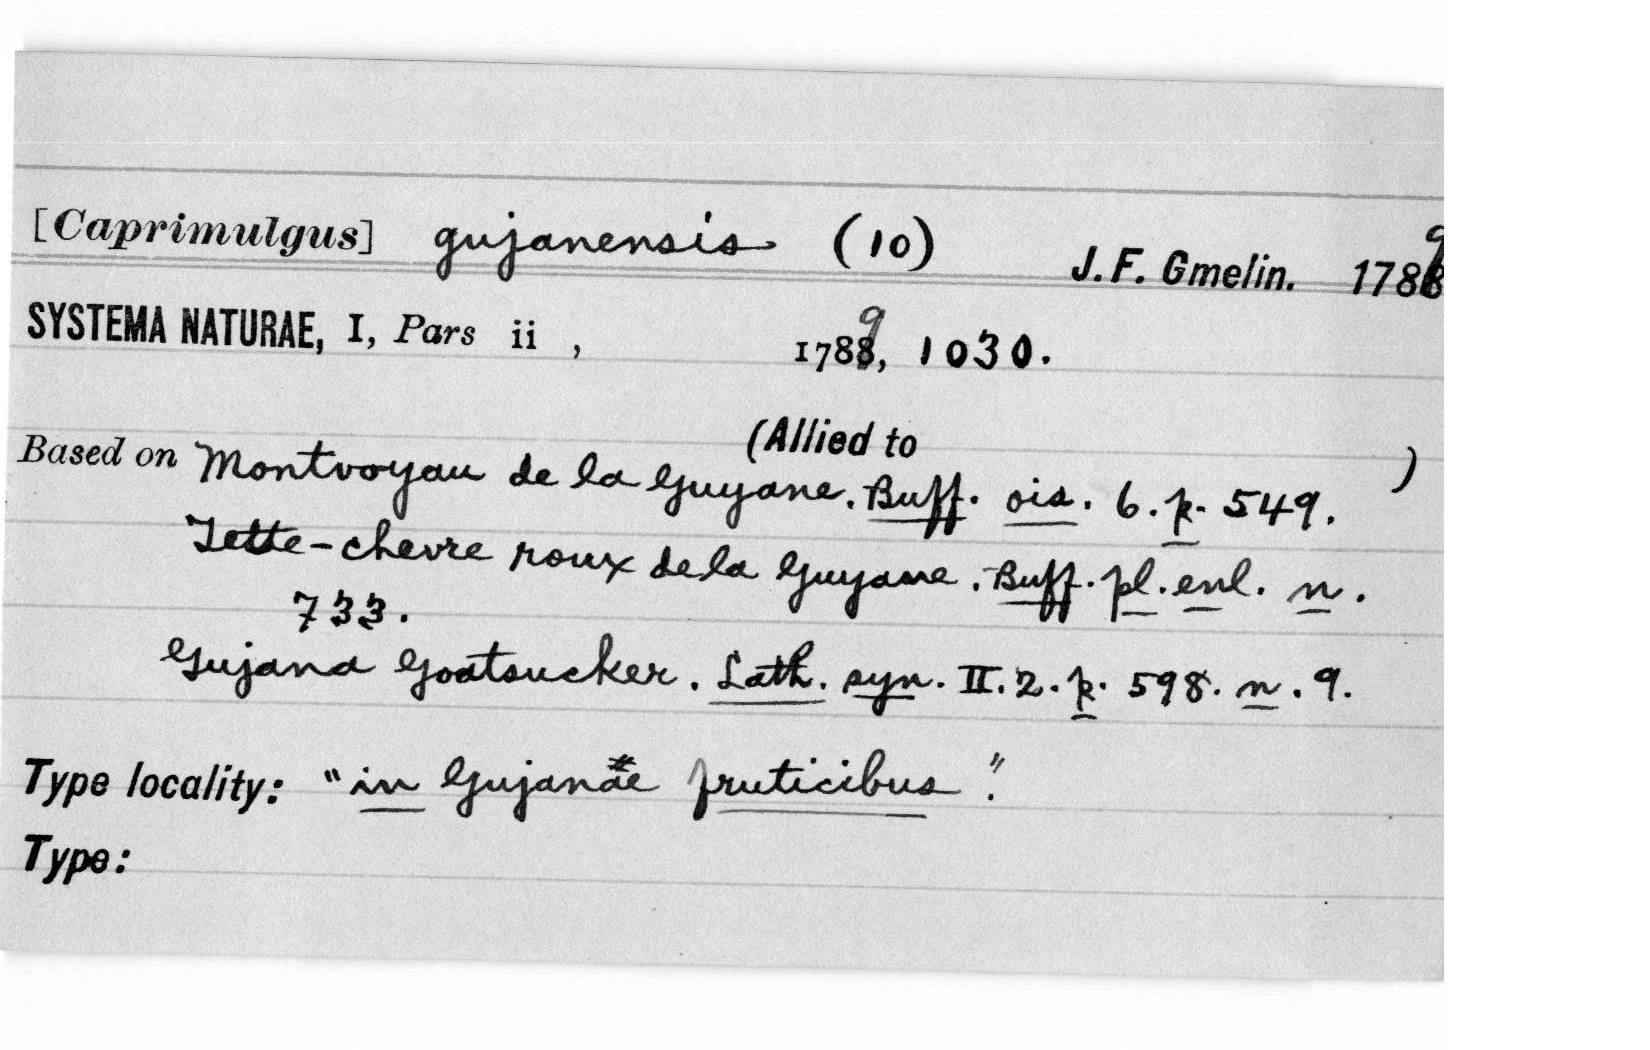 [Caprimulgus] gujanensis (10) J. F. Gmelin. 1789
SYSTEMA NATURAE, I, Pars ii , 1789, 1030.
(Allied to )
Based on Montvoyau de la Guyane. Buff. ois. 6. p. 549.
Tette-chevre roux de la Guyane. Buff. pl. enl. n.
733.
Gujana Goatsucker. Lath. syn. II. 2. p. 598. n. 9.
Type locality: "in Gujanæ fruticibus".
Type: